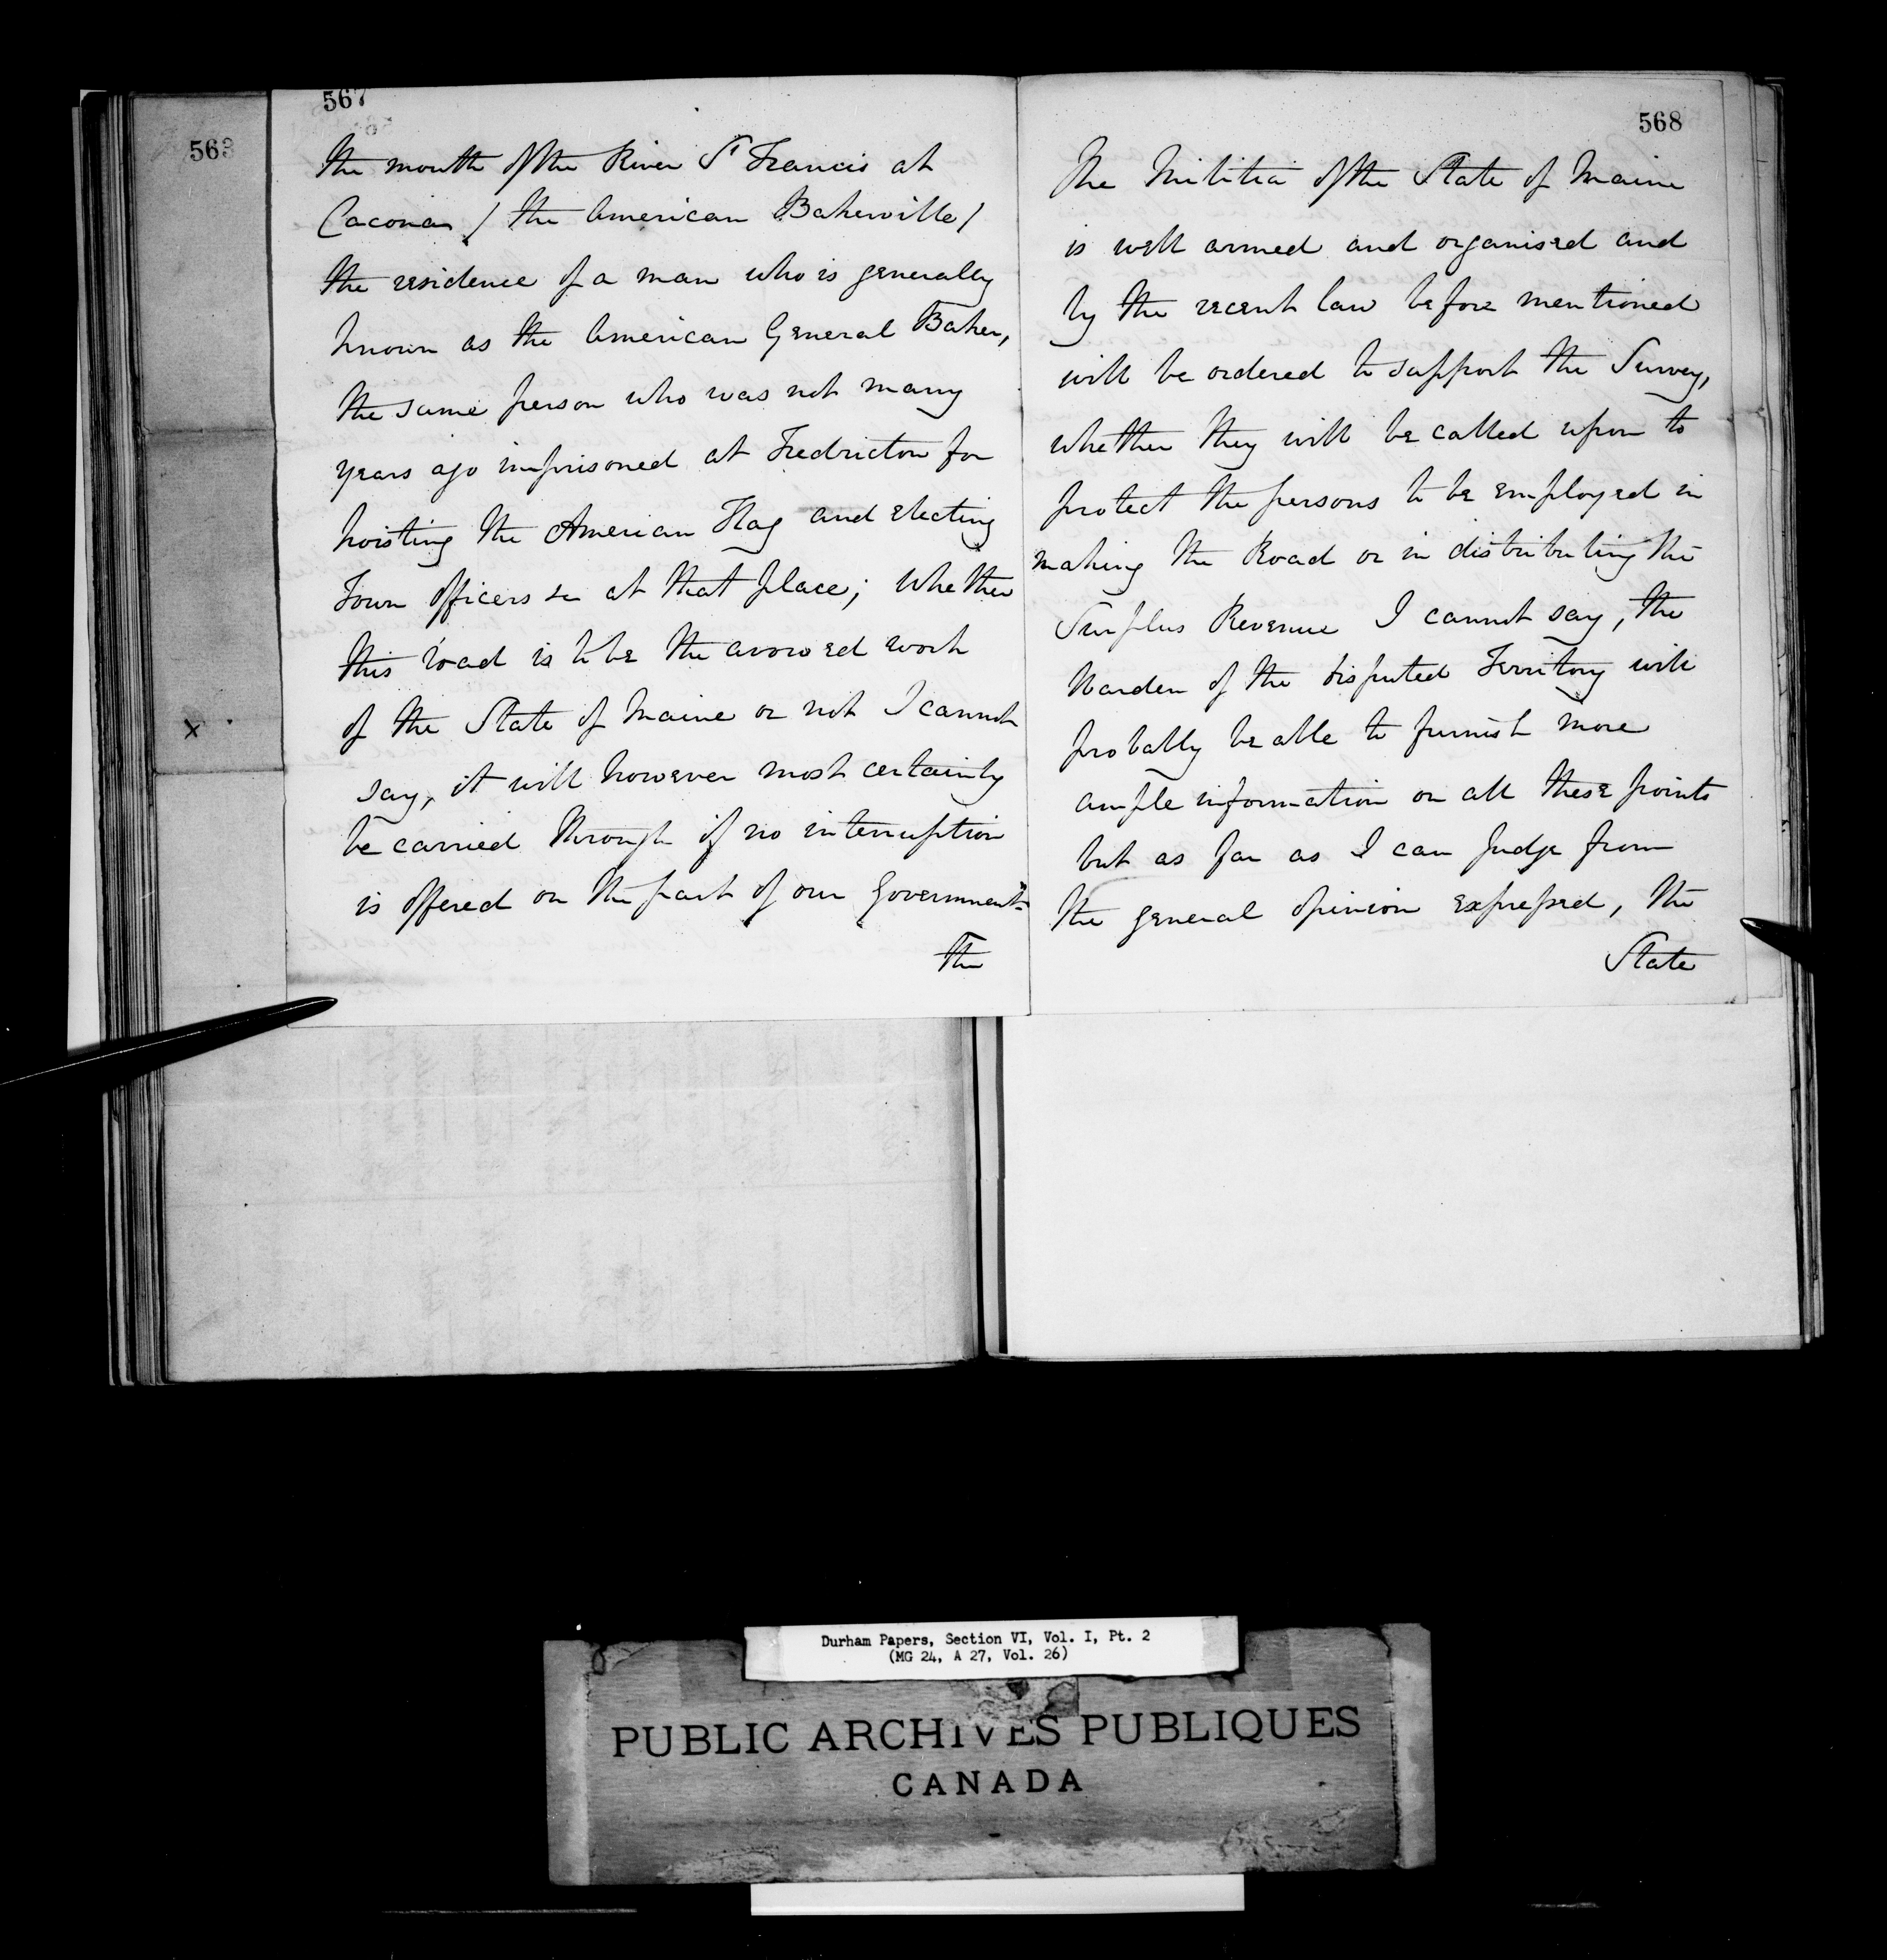 563
567
the mouth of the River St Francis at
Caconia / the American Bakerville /
the residence of a man who is generally
known as the American General Baker,
the same person who was not many
years ago imprisoned at Fredricton for
hoisting the American Flag and electing
Town officers &c at that place; Whether
this road is to be the avowed work
of the State of Maine or not I cannot
say, it will however most certainly
be carried through if no interruption
is offered on the part of our Government
The
568
The Militia of the State of Maine
is well armed and organised and
by the recent law before mentioned
will be ordered to support the Survey,
whether they will be called upon to
protect the persons to be employed in
making the Road or in distributing the
Surplus Revenue I cannot say, the
Warden of the disputed Territory will
probably be able to furnish more
ample information on all these points
but as far as I can judge from
the general opinion expressed, the
State
x
Durham Papers, Section VI, Vol. I, Pt. 2
(MG 24, A 27, Vol. 26)
PUBLIC ARCHIVES PUBLIQUES
CANADA